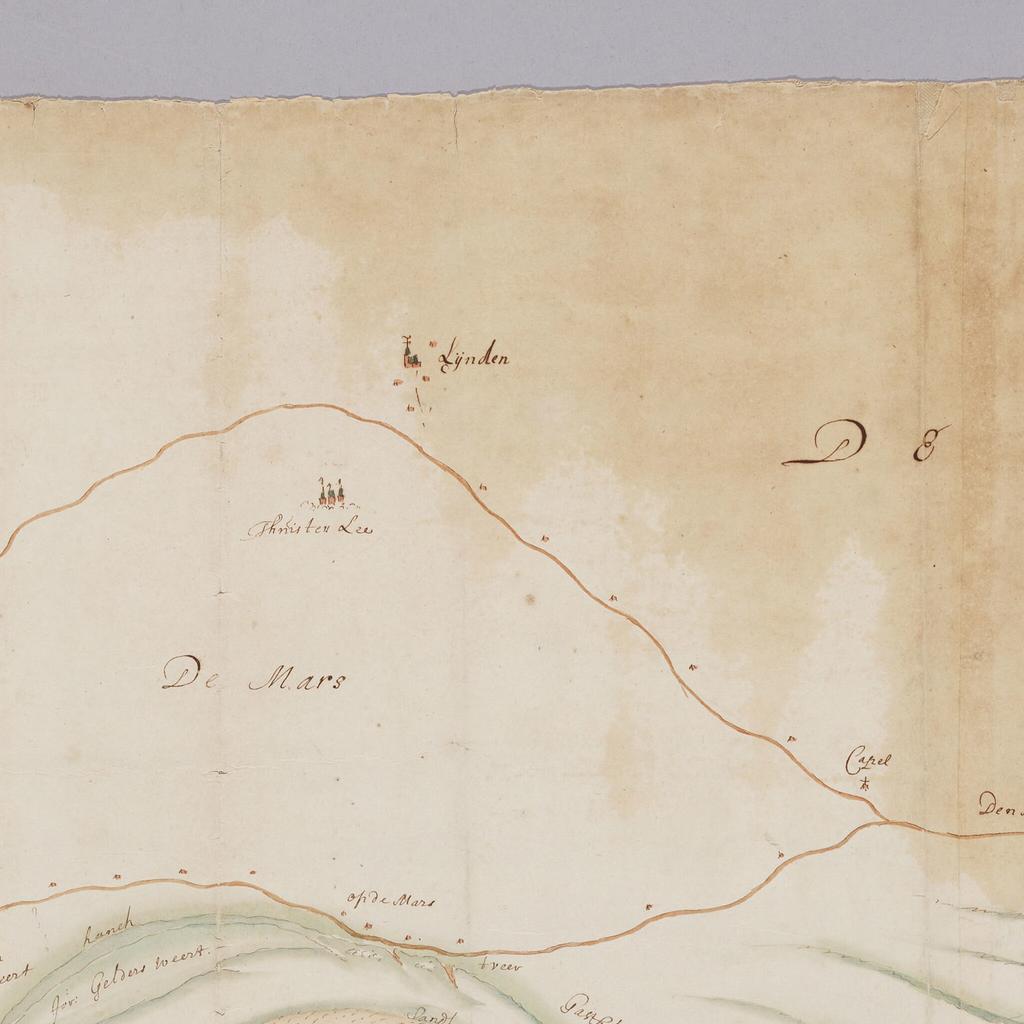 Lÿnden
D E
Thuis ten Lee
De Mars
Capel
Den
op de Mars
hanck
weert
Gelders weert.
t veer
Sandt